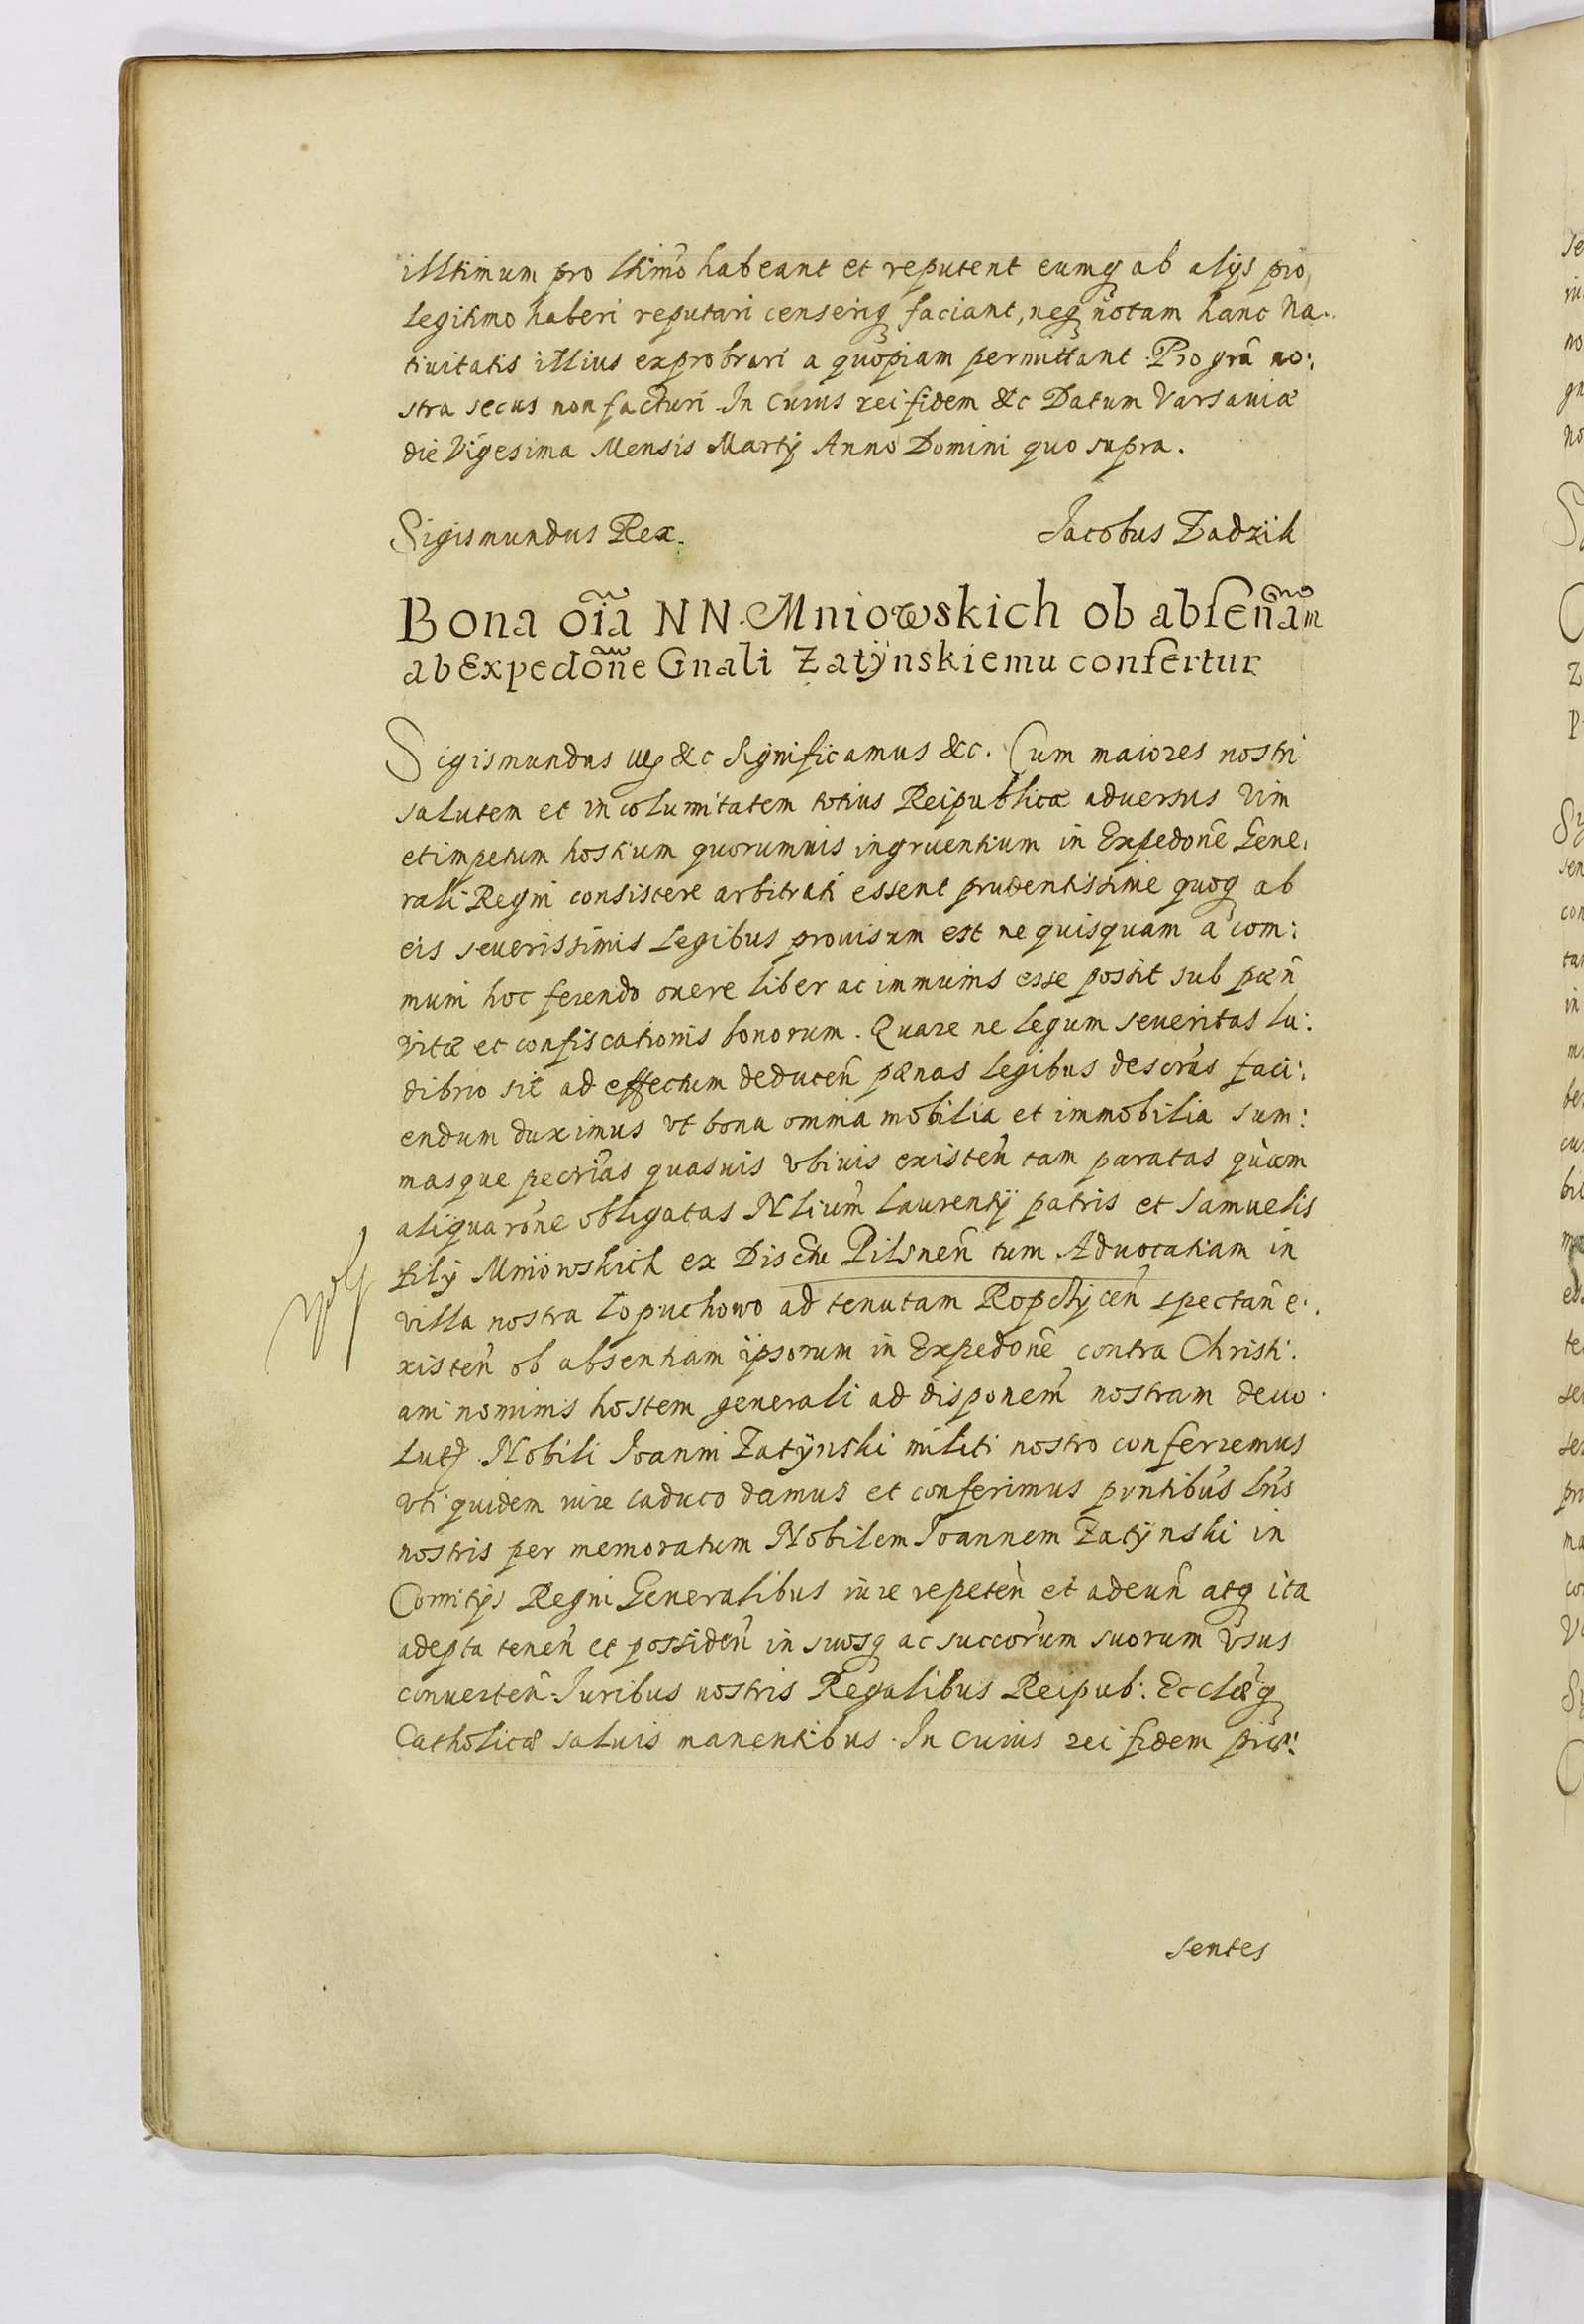 illtimum pro ltimo habeant et reputent eumq ab alijs pro
legitimo haberi reputari censeriq faciant, neq notam hanc Na..
tiuitatis illius exprobrari a quopiam permittant. Pro grã no:
stra secus non facturi. In cuius rei fidem &c Datum Varsauiæ
die Vigesima Mensis Martij Anno Domini quo supra.
Sigismundus Rex.
Jacobus Zadzik
Bona oĩa NN. Mniowskich ob absenãm
ab Expedõne Gnali Zatÿnskiemu confertur
Sigismundus &c Significamus &c. Cum maiores nostri
salutem et incolumitatem totius Reipublicæ aduersus Vim
et impetum hostium quorumuis ingruentium in Expedonẽ Gene,
rali Regni consistere arbitrati essent prudentissime quoq ab
eis seuerissimis Legibus prouisum est ne quisquam a com:
muni hoc ferendo onere liber ac immunis esse possit sub pæñ
vitæ et confiscationis bonorum. Quare ne legum seueritas lu:
dibrio sit ad effectum deduceñ pænas Legibus descrãs faci:
endum duximus vt bona omnia mobilia et immobilia sum:
masque pecrias quasuis vbiuis existeñ tam paratas quàm
aliqua rõne obligatas Nlium̃ Laurentÿ patris et Samuelis
filÿ Mniowskich ex Discũ Pilsneñ tum Aduocatiam in
villa nostra Lopuchowo ad tenutam Ropchÿceñ spectañ e.
xisteñ ob absentiam ipsorum in Expedonẽ contra Christi.
ani nominis hostem generali ad disponem̃ nostram deuo.
lut. Nobili Joanni Zatÿnski militi nostro conferremus
vti quidem iure caduco damus et conferimus pñtibus lris
nostris per memoratum Nobilem Joannem Zatÿnski in
Comitÿs Regni Generalibus iure repeteñ et adeuñ atq ita
adepta teneñ et possideñ in suosq ac succorum suorum vsus
conuerteñ. Juribus nostris Regalibus Reipub: Ecclæq
Catholicæ saluis manentibus. In cuius rei fidem præ:
sentes